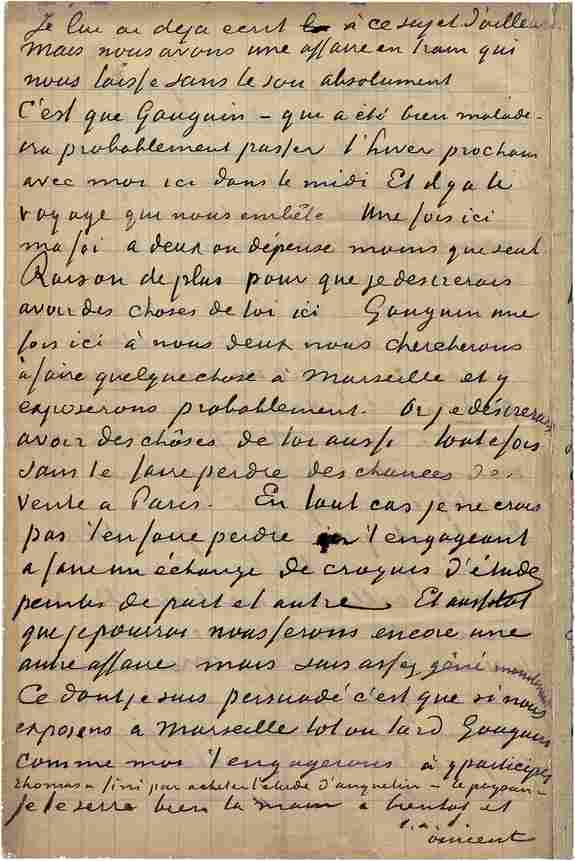 Je lui ai deja ecrit à ce sujet d'ailleurs
Mais nous avons une affaire en train qui
nous laisse sans le sou absolument
C'est que Gauguin – qui a été bien malade –
va probablement passer l'hiver prochain
avec moi ici dans le midi Et il y a le
voyage qui nous embête Une fois ici
ma foi a deux on dépense moins que seul.
Raison de plus pour que je desirerais
avoir des choses de toi ici Gauguin une
fois ici à nous deux nous chercherons
à faire quelque chose à Marseille et y
exposerons probablement. Or je désirerais
avoir des chôses de toi aussi toutefois
sans te faire perdre des chances de
vente a Paris. En tout cas je ne crois
pas t'en faire perdre en t'engageant
a faire un échange de croquis d'études
peintes de part et autre. Et aussitot
que je pourrai nous ferons encore une
autre affaire mais suis assez gêné
Ce dont je suis persuadé c'est que si nous
exposons a Marseille tot ou tard Gauguin
comme moi t'engagerons à y participer
Thomas a fini par acheter l'étude d'Anquetin – le paysan –
je te serre bien la main a bientot et
t. à.
Vincent